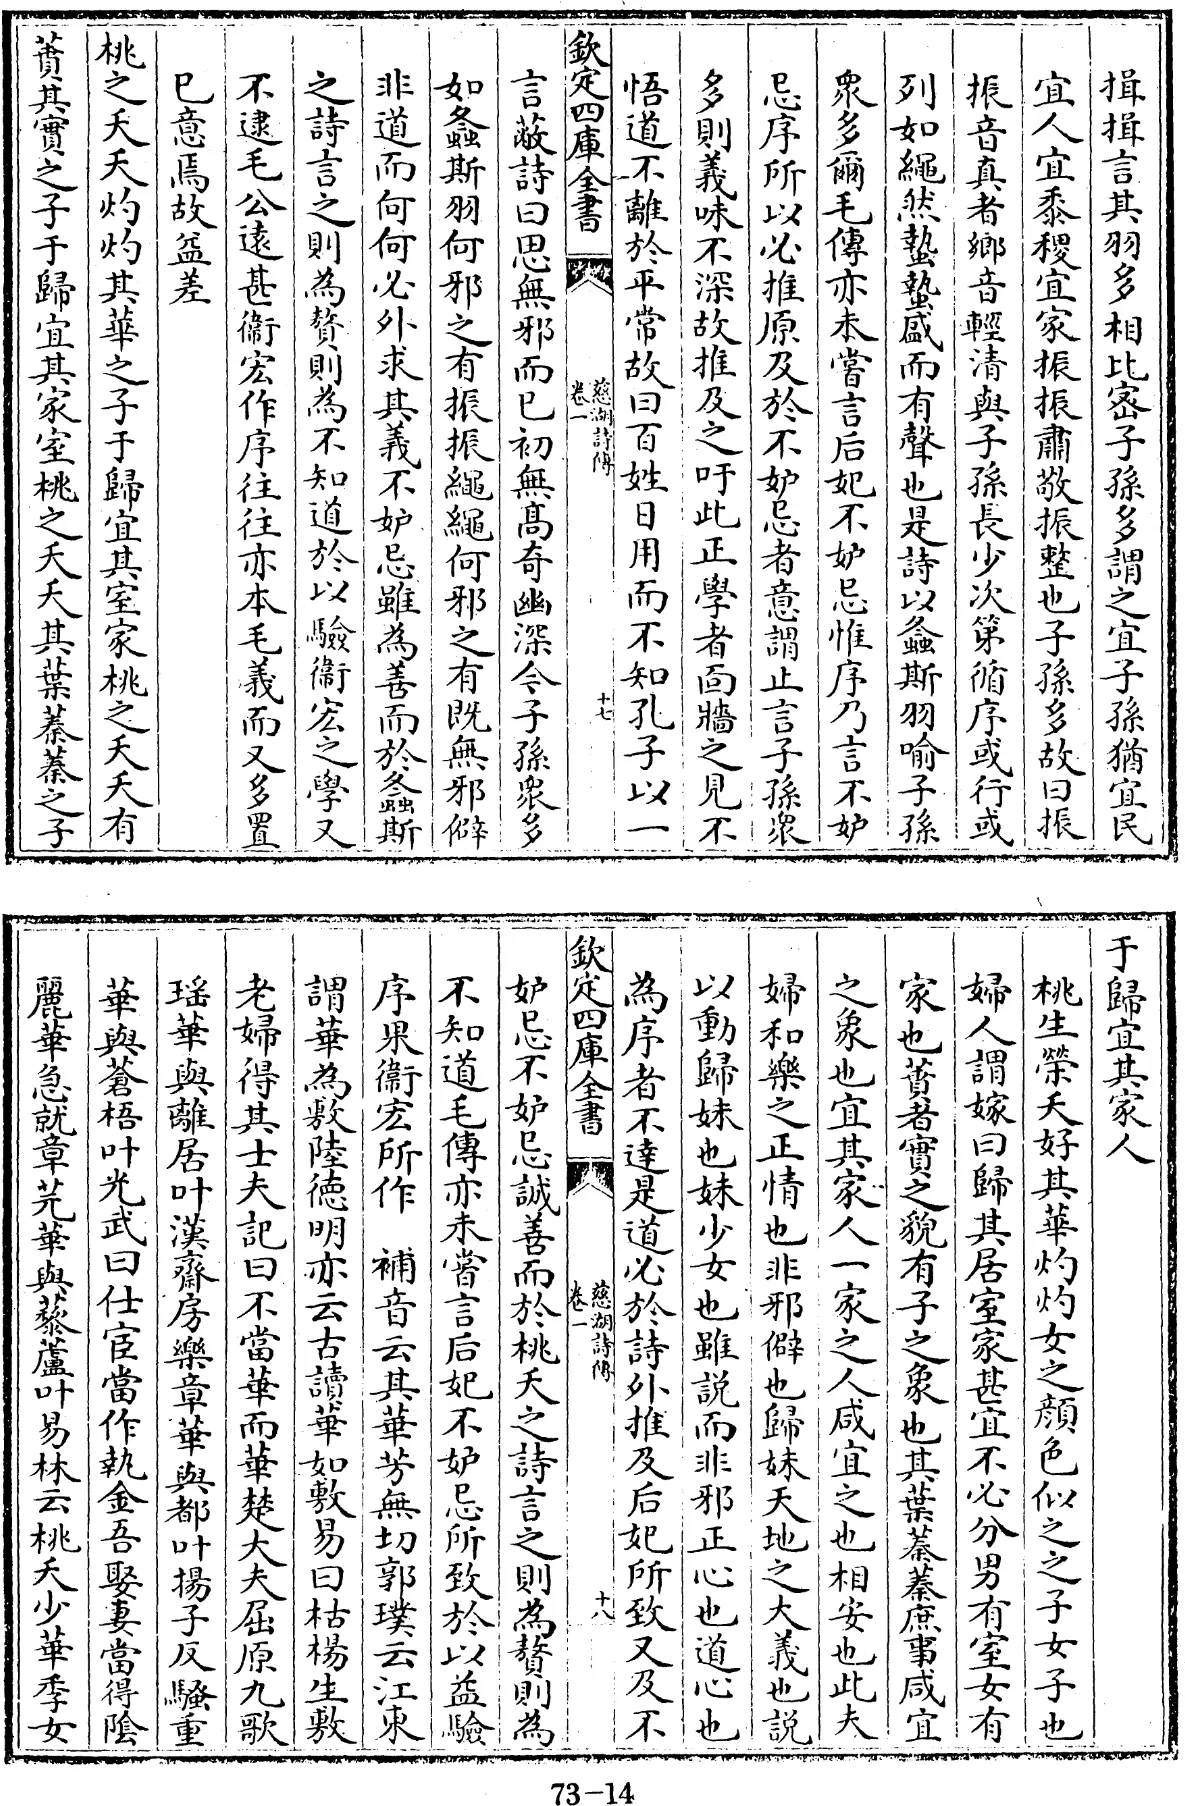 揖揖言其羽多相比宻子孫多謂之宜子孫猶宜民
宜人宜黍稷宜家振振肅敬振整也子孫多故曰振
振音真者鄉音輕清與子孫長少次第循序或行或
列如繩然蟄蟄盛而有聲也是詩以螽斯羽喻子孫
衆多爾毛傳亦未嘗言后妃不妒忌惟序乃言不妒
忌序所以必推原及於不妒忌者意謂止言子孫衆
多則義味不深故推及之吁此正學者面牆之見不
悟道不離於平常故曰百姓日用而不知孔子以一
欽定四庫全書
慈湖詩傳
卷一
十七
言蔽詩曰思無邪而已初無髙奇幽深今子孫衆多
如螽斯羽何邪之有振振繩繩何邪之有既無邪僻
非道而何何必外求其義不妒忌雖為善而於螽斯
之詩言之則為贅則為不知道於以驗衞宏之學又
不逮毛公逺甚衞宏作序往往亦本毛義而又多置
已意焉故益差
桃之夭夭灼灼其華之子于歸宜其室家桃之夭夭有
蕡其實之子于歸宜其家室桃之夭夭其葉蓁蓁之子
于歸宜其家人
桃生榮夭好其華灼灼女之顔色似之之子女子也
婦人謂嫁曰歸其居室家甚宜不必分男有室女有
家也蕡者實之貌有子之象也其葉蓁蓁庶事咸宜
之象也宜其家人一家之人咸宜之也相安也此夫
婦和樂之正情也非邪僻也歸妹天地之大義也説
以動歸妹也妹少女也雖説而非邪正心也道心也
為序者不達是道必於詩外推及后妃所致又及不
欽定四庫全書
慈湖詩傳
卷一
十八
妒忌不妒忌誠善而於桃夭之詩言之則為贅則為
不知道毛傳亦未嘗言后妃不妒忌所致於以益驗
序果衞宏所作　補音云其華芳無切郭璞云江東
謂華為敷陸德明亦云古讀華如敷易曰枯楊生敷
老婦得其士夫記曰不當華而華楚大夫屈原九歌
瑶華與離居叶漢齋房樂章華與都叶揚子反騷重
華與蒼梧叶光武曰仕宦當作執金吾娶妻當得陰
麗華急就章芫華與藜蘆叶易林云桃夭少華季女
73-14